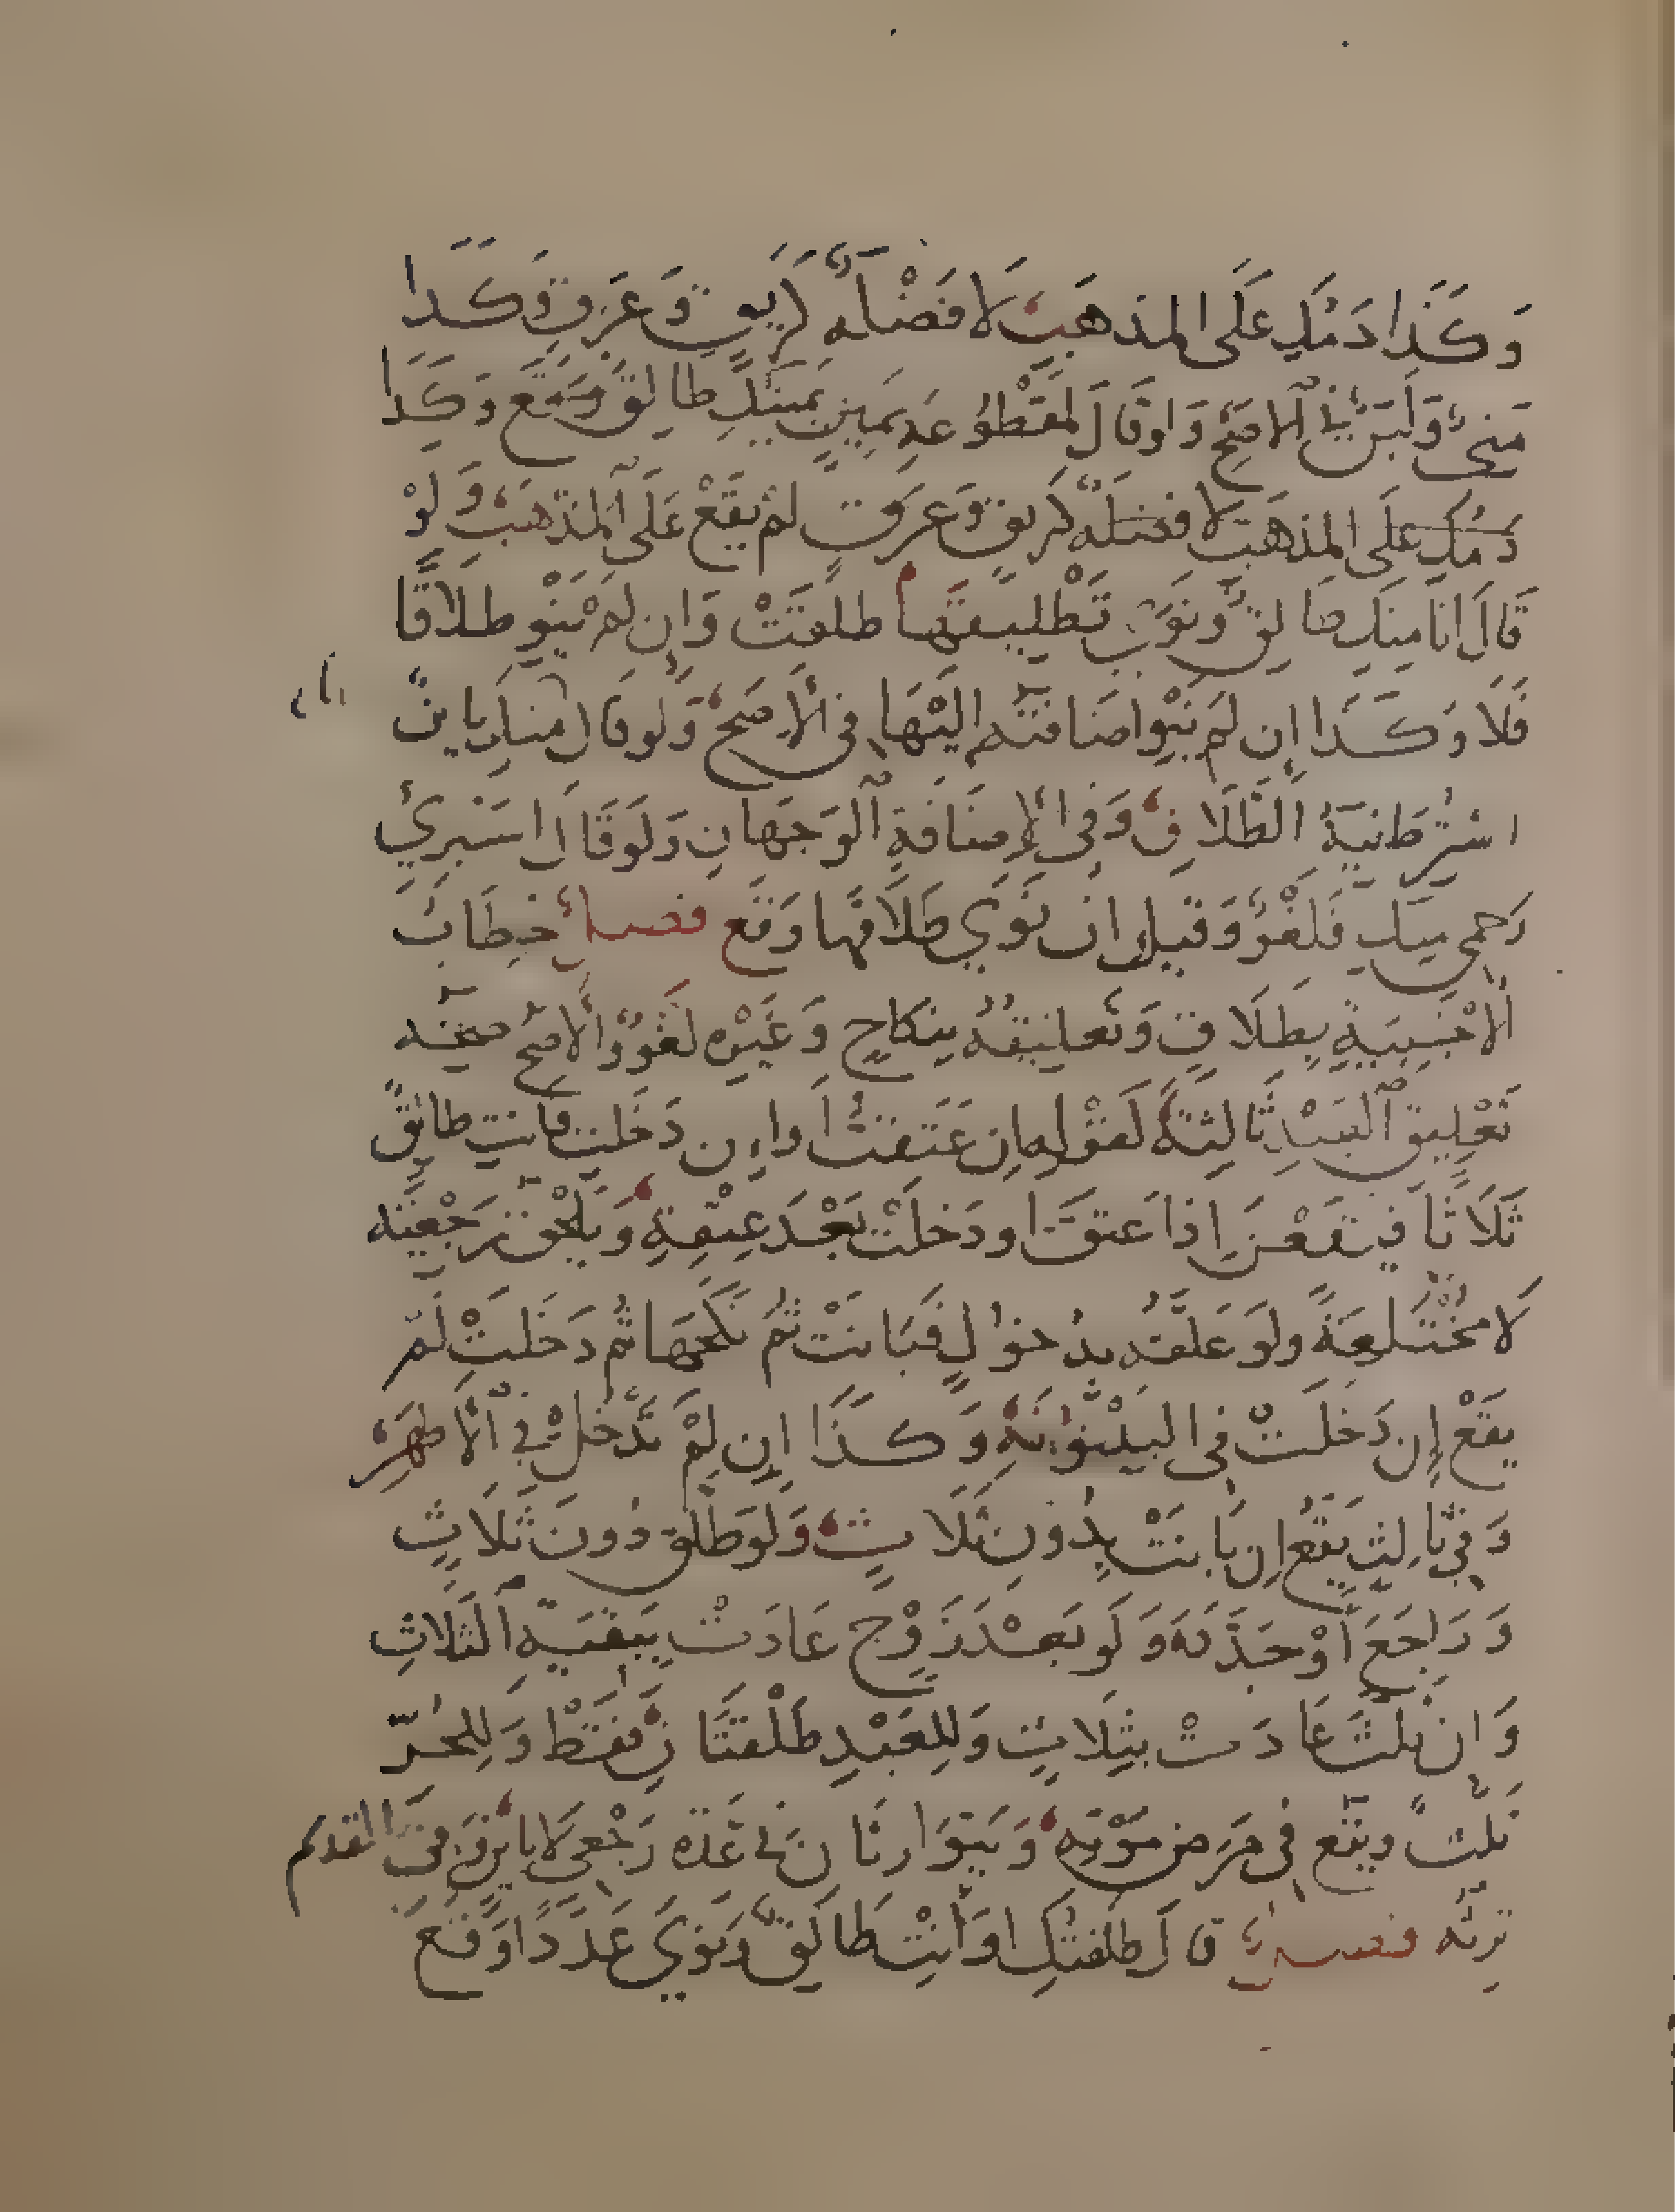 وَكَذَا دَمُكِ عَلَى المذهَبِ لَا فَضْلَةٌ كَرِيقٍ وَعَرَقٍ وَكَذَا
مَنِيٌّ وَلَبَنٌ فِي الْاَصَحِّ وَلوقَالَ لمقطُوعَةِ يَمِينٍ يَمِينُكِ طَالِقٌ وَقَعَ وَكَذَا
دَمُكِ عَلَى المذهَبِ لا فضلَةٌ كَرِيقٍ وَعَرَقٍ لَمْ يَقَعْ عَلَى المَذهَبِ وَلَوْ
قَالَ اَنَا مِنكِ طالِقٌ وَنَوَى تَطْلِيقَهَا طَلُقَتْ وَاِن لَمْ يَنْوِ طَلَاقًا
فَلَا وَكَذَا اِن لَم يَنْوِ اضَافَتَهُ اِلَيْهَا فِي الْاَصَحِّ وَلَو قَالَ اَنَا مِنكِ بَايِنٌ
اشْتُرِطَ نِيَّةُ الطَّلَاقِ وَفِي الْاِضَافَةِ الوَجهَانِ وَلَو قَالَ اسْتَبْرِي
رَحِمِي مِنكِ فَلَغْوٌ وَقِيلَ اِنْ نَوَى طَلَاقَهَا وَقَعَ فصل خِطَابُ
الْاَجْنَبِيَّةِ بِطَلَاقٍ وَتَعلِيقُهُ بِنِكَاحٍ وَغَيْرِهِ لَغْوٌ وَالْاَصَحُّ صحة
تَعْلِيقِ العَبْدِ ثَالِثَةً كَقَوْلِهِ اِن عَتَقتُ اَو اِن دَخَلتِ فَانتِ طَالِقٌ
ثَلَاثًا فَيَقَعْنَ اِذَا عَتَقَ اَو دَخَلَتْ بَعْدَ عِتْقِهِ وَيَلْحَقُ رَجْعِيَّةً
لَا مُخْتَلِعَةً ولَو عَلَّقَهُ بِدُخُولٍ فَبَانَتْ ثُمَّ نَكَحَهَا ثُم دَخَلَتْ لَمْ
يَقَعْ اِن دَخَلَتْ فِي البَيْنُونَةِ وَكَذَا اِن لَمْ تَدْخُلْ فِي الْاَظهَرِ
وَفِي ثَالِثٍ يَقَعُ اِن بَانَتْ بِدُونِ ثَلَاثٍ وَلَو طَلَّقَ دُونَ ثَلَاثٍ
وَرَاجَعَ اَوْ جَدَّدَ وَلَو بَعْدَ زَوْجٍ عَادَتْ بِبَقِيَّةِ الثَّلَاثِ
وَاِن ثَلَّثَ عَادَتْ بِثَلَاثٍ وَلِلعَبْدِ طَلْقَتَانِ فَقَطْ وَلِلحُرِّ
ثَلَثٌ ويَقَع فِي مَرَضِ مَوْتِهِ وَيَتَوَارَثَانِ فِي عِدَّةِ رَجْعِيٍّ لَا بَايِنٍ وَفِي القديم
تَرِثُه فصل قَالَ طَلَّقتُكِ اَو اَنْتِ طَالِقٌ وَنَوَى عَدَدًا وَقَعَ